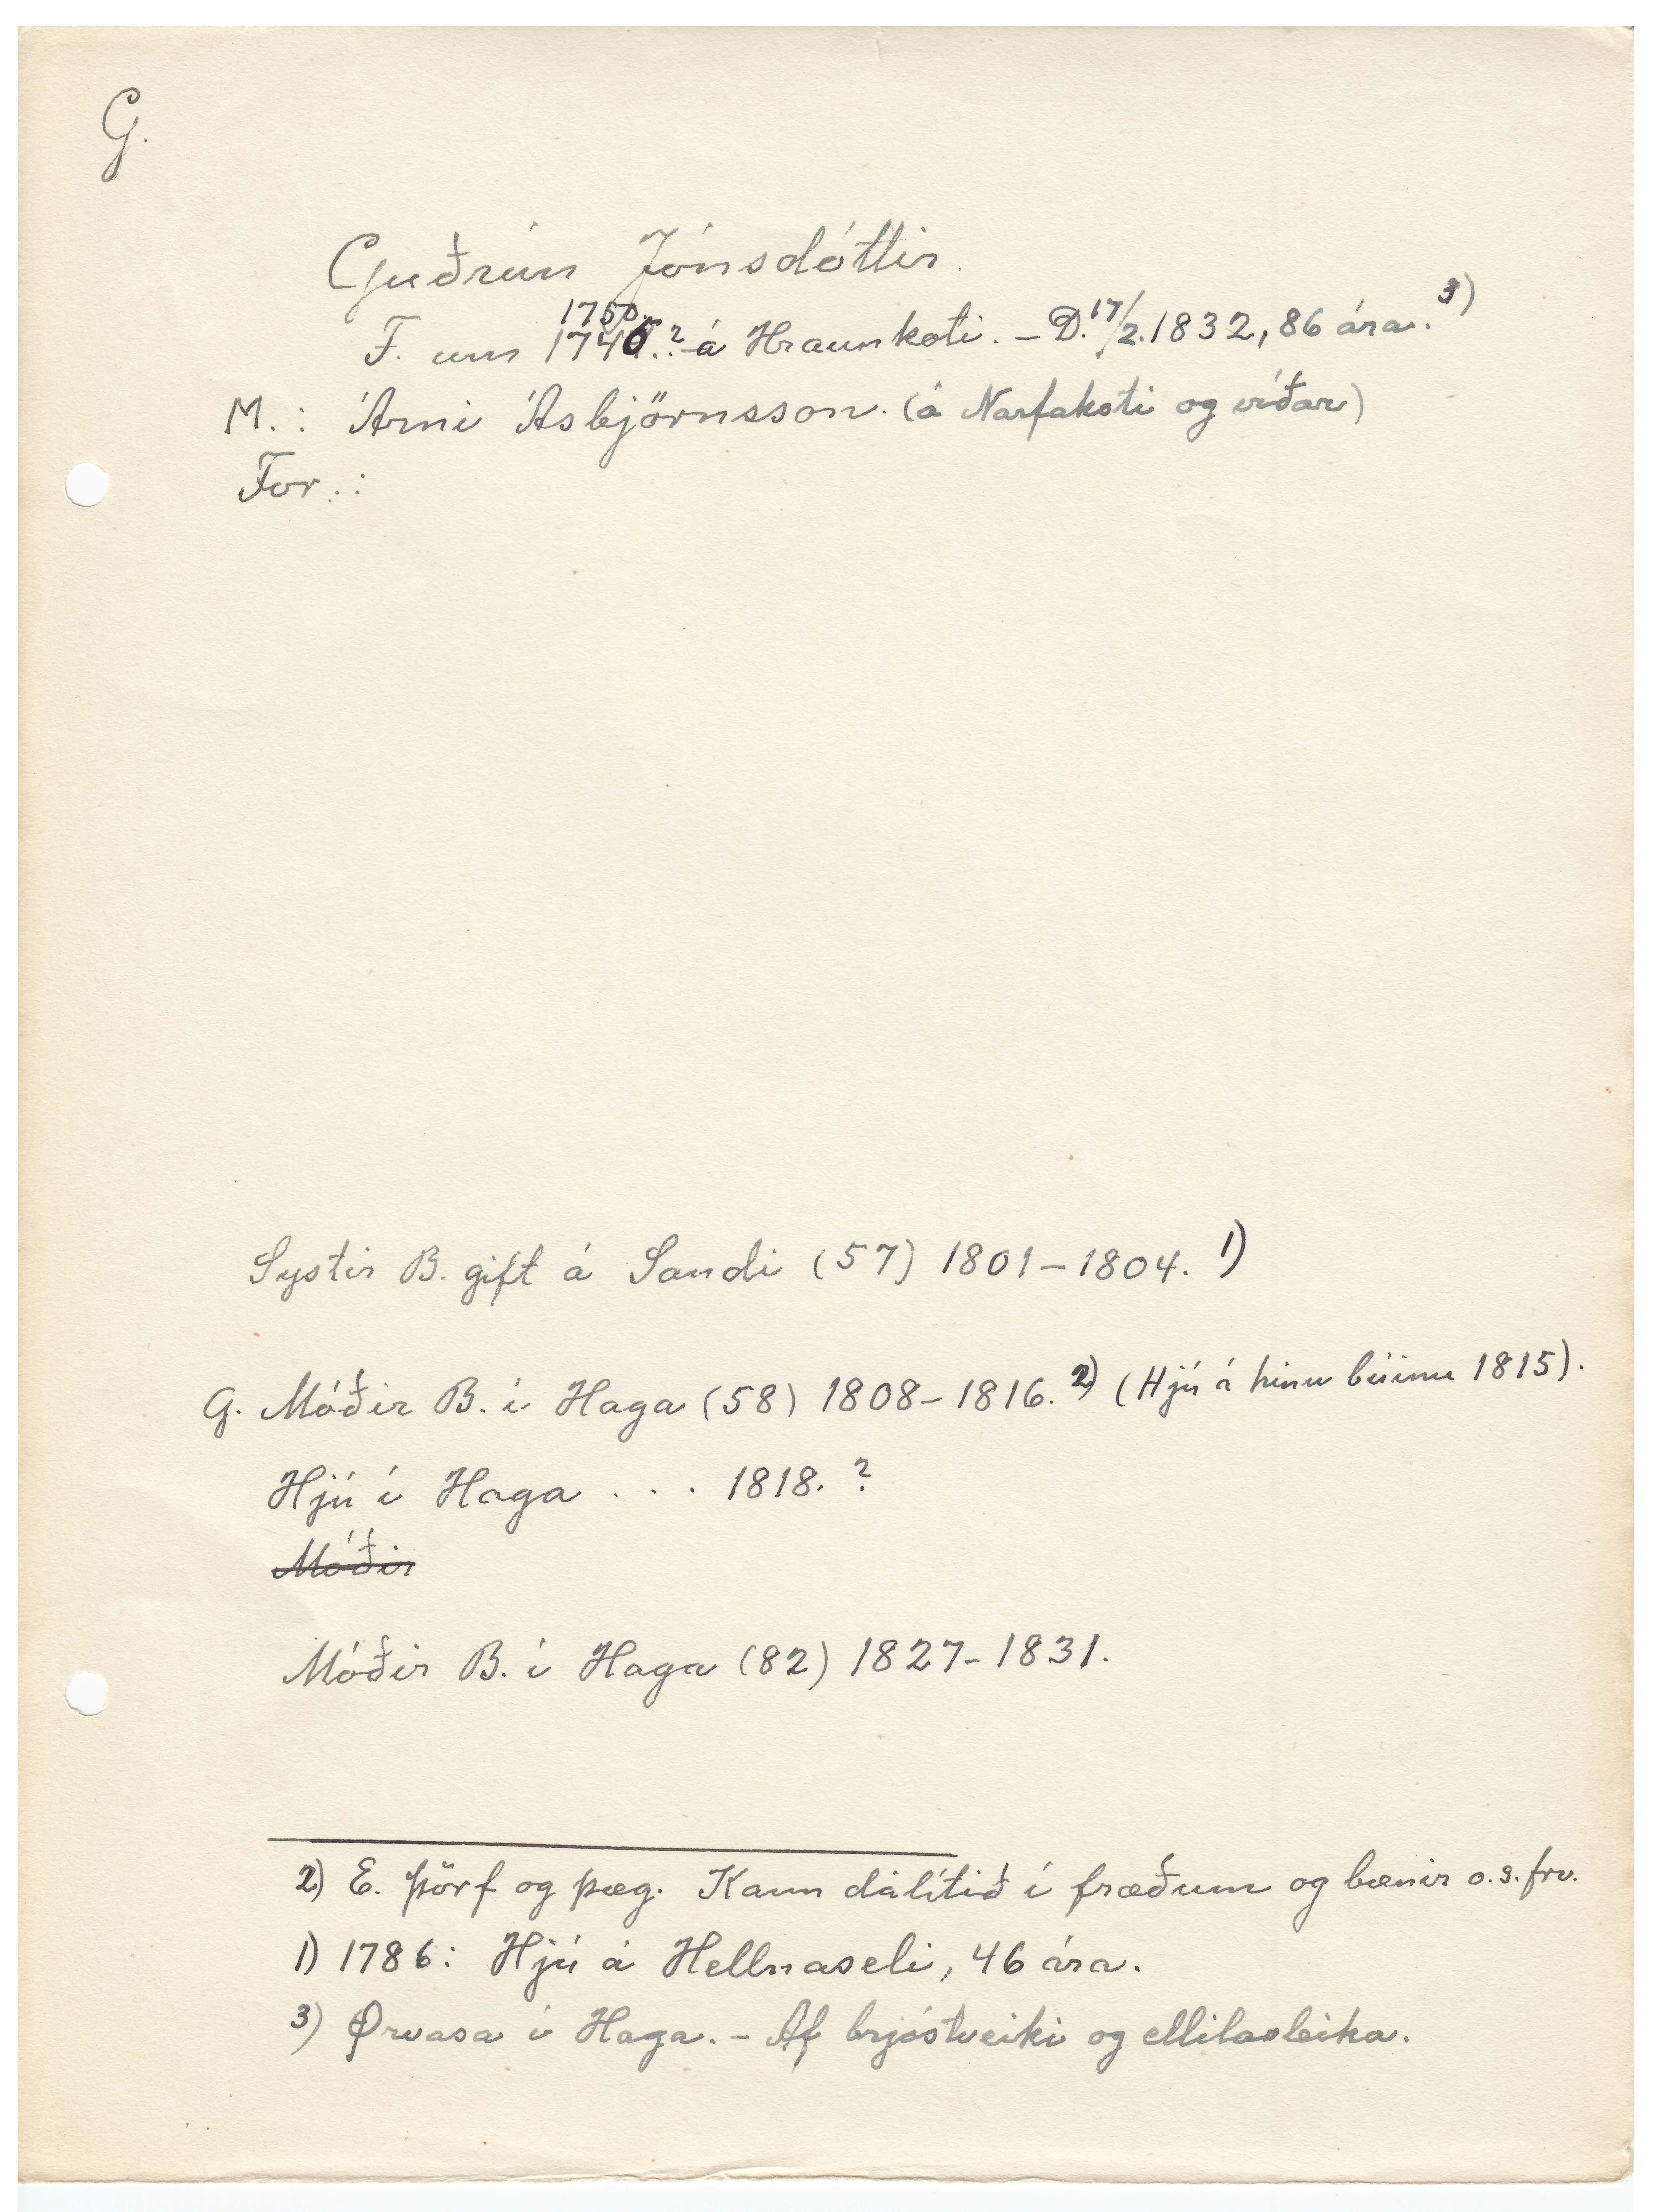 G.
Guðrún Jónsdóttir.
1750.
F. um 1746.? á Hraunkoti. – D. 17/2. 1832, 86 ára. 3)
M.: Árni Ásbjörnsson. (á Narfakoti og víðar)
For.:
Systir B. gift á Sandi (57) 1801–1804. 1)
G. Móðir B. í Haga (58) 1808–1816. 2) (Hjú á hinu búinu 1815).
Hjú í Haga . . . 1818. ?
Móðir
Móðir B. í Haga (82) 1827–1831.
2) E. þörf og þæg. Kann dálítið í fræðum og bænir o.s.frv.
1) 1786: Hjú á Hellnaseli, 46 ára.
3) Ørvasa í Haga. – Af brjóstveiki og ellilasleika.